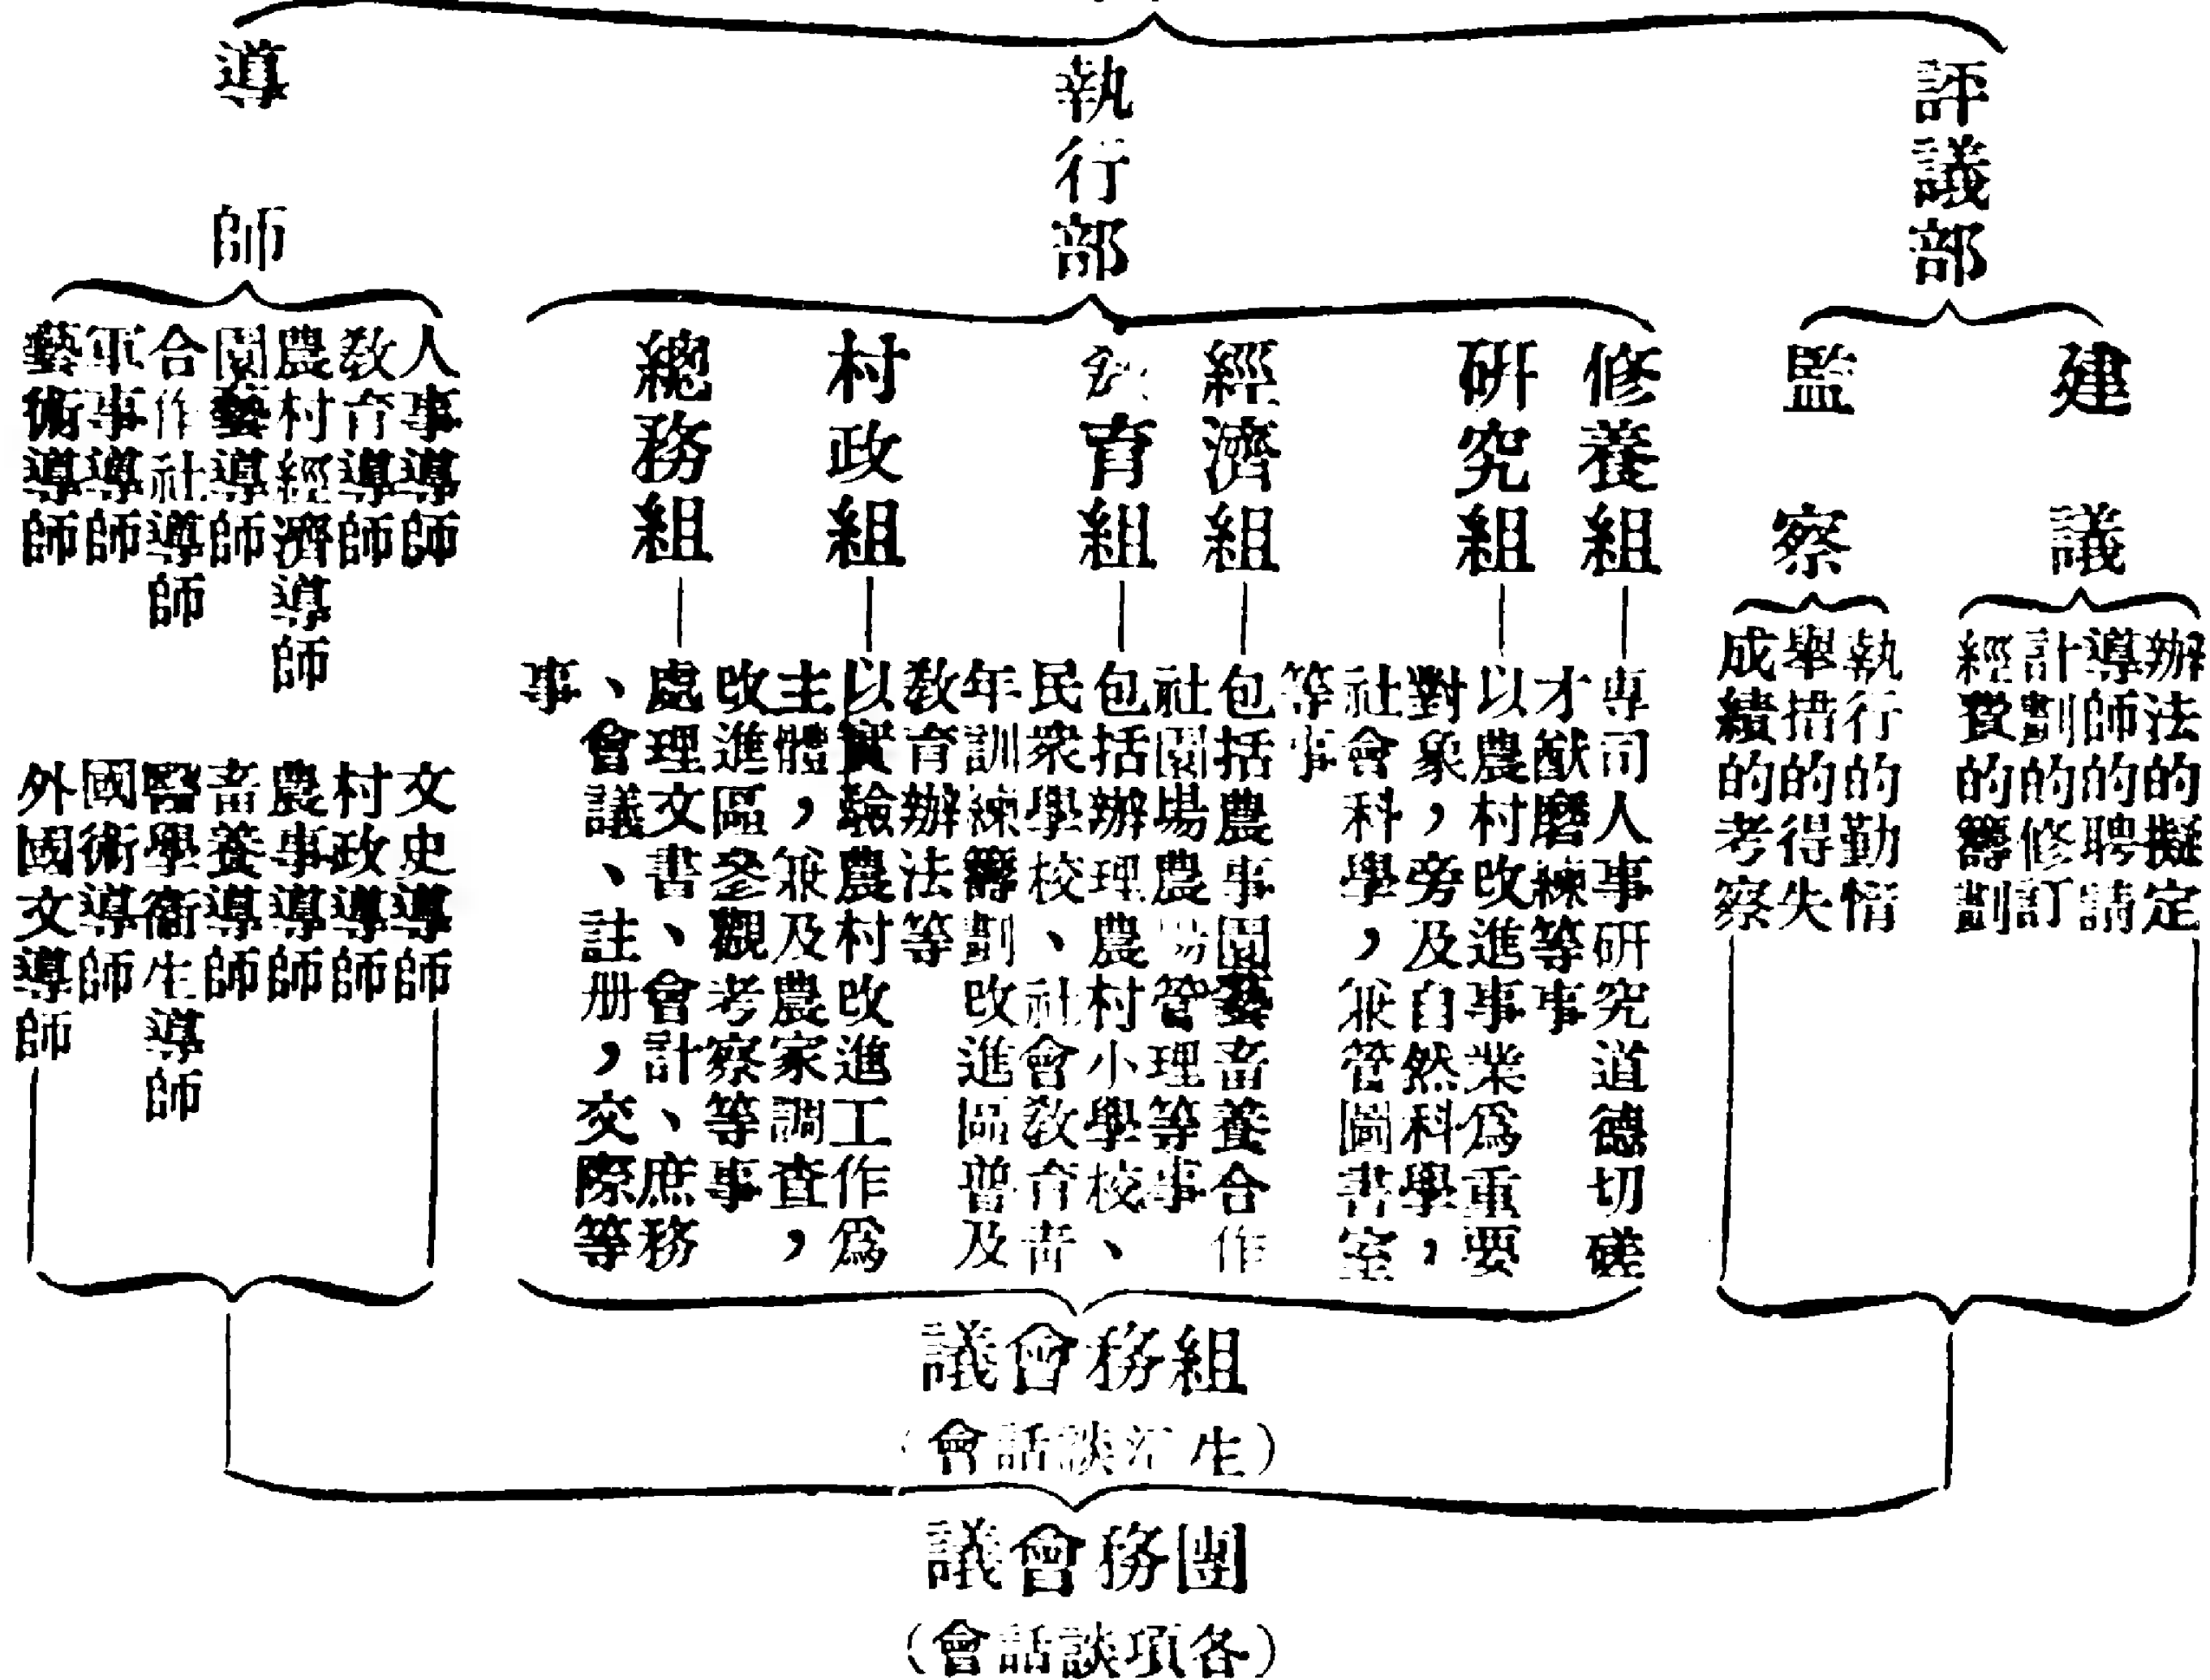 評議部
建議
辦法的擬定
導師的聘請
計劃的修訂
經費的籌劃
監察
執行的勤惰
舉措的得失
成績的考察
執行部
修養組
專司人事研究道德切磋
才猷磨練等事
研究組
以農村改進事業爲重要
對象，旁及自然科學，
社會科學，兼管圖書室
等事
經濟組
包括農事園藝畜養合作
社園場農場管理等事
育組
包括辦理農村小學校、
民衆學校、社會教育青
年訓練籌劃改進區普及
教育辦法等
村政組
以實驗農村改進工作爲
主體，兼及農家調查，
改進區參觀考察等事
總務組
處理文書、會計、庶務
、會議、註册，交際等
事
導師
人事導師
教育導師
農村經濟導師
園藝導師
合作社導師
軍事導師
藝術導師
文史導師
村政導師
農事導師
畜養導師
醫學衞生導師
國術導師
外國文導師
組務會議
（生活談話會）
團務會議
（各項談話會）